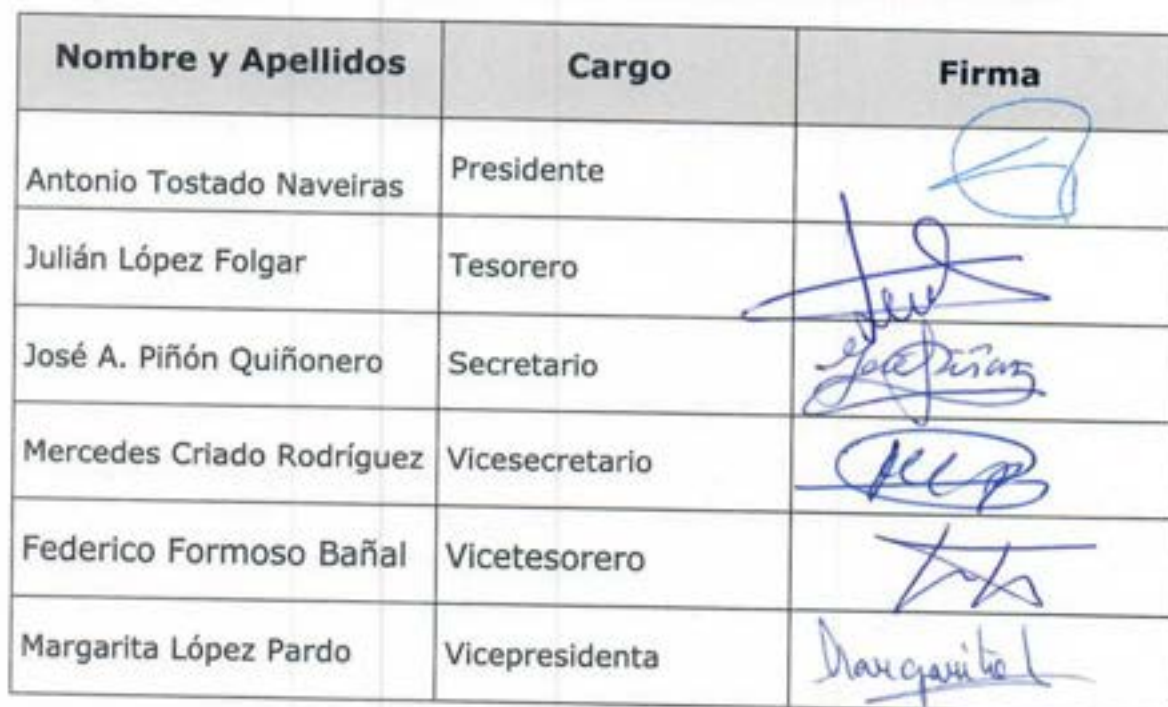 Nombre y Apellidos Cargo Firma
Antonio Tostado Naveiras Presidente
Julián López Folgar Tesorero
José A. Piñón Quiñonero Secretario
Mercedes Criado Rodríguez Vicesecretario
Federico Formoso Bañal Vicetesorero
Margarita López Pardo Vicepresidenta Margarita L